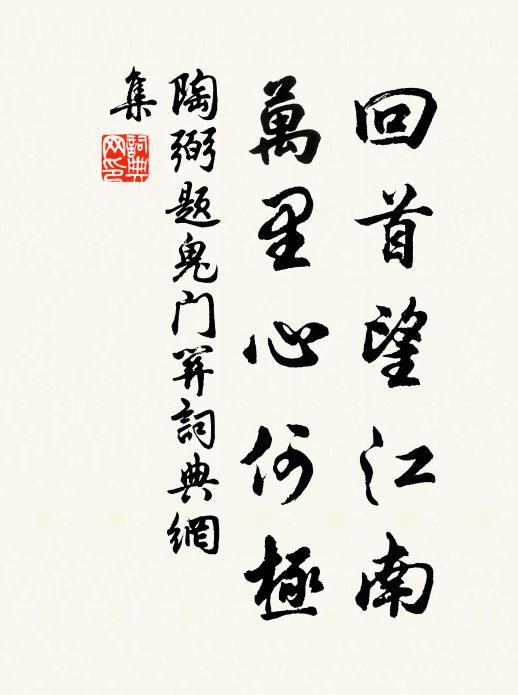 回首望江南
萬里心何極
陶弼題鬼门關詞典網
集
詞典
网印